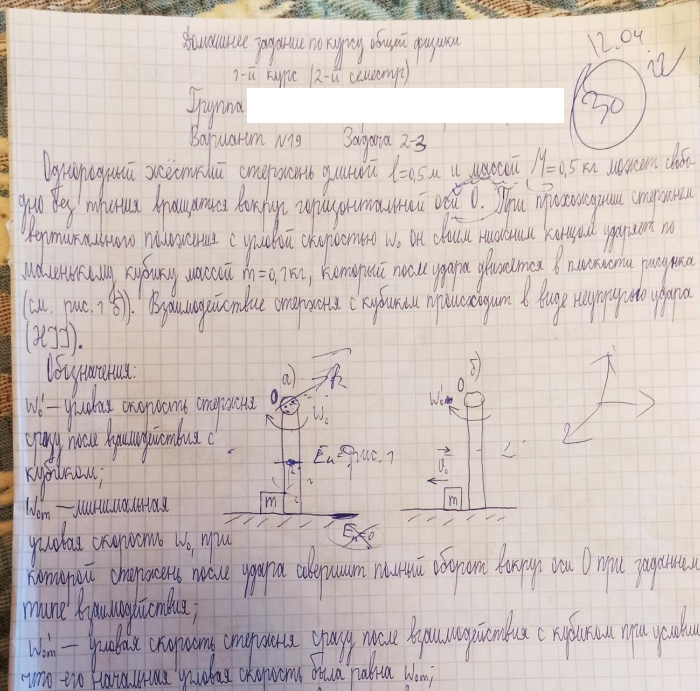 Домашнее задание по курсу общей физики
12.04
1-й курс (2-й семестр)
30
Группа
Вариант №19 Задача 2-3
Однородный жёсткий стержень длиной l=0,5м и массой M=0,5кг может свобо-
дно без трения вращаться вокруг горизонтальной оси O. При прохождении стержнем
вертикального положения с угловой скоростью ω₀ он своим нижним концом ударяет по
маленькому кубику массой m=0,1кг, который после удара движется в плоскости рисунка
(см. рис. 1 б)). Взаимодействие стержня с кубиком происходит в виде неупругого удара
(НУ).
Обозначения:
а)
б)
O
O
ω₀' – угловая скорость стержня
ω₀
сразу после взаимодействия с
Eп=0
рис. 1
кубиком;
m
m
ω₀m – минимальная
угловая скорость ω₀, при
которой стержень после удара совершит полный оборот вокруг оси O при заданном
типе взаимодействия;
ω₀m' – угловая скорость стержня сразу после взаимодействия с кубиком при условии
что его начальная угловая скорость была равна ω₀m;